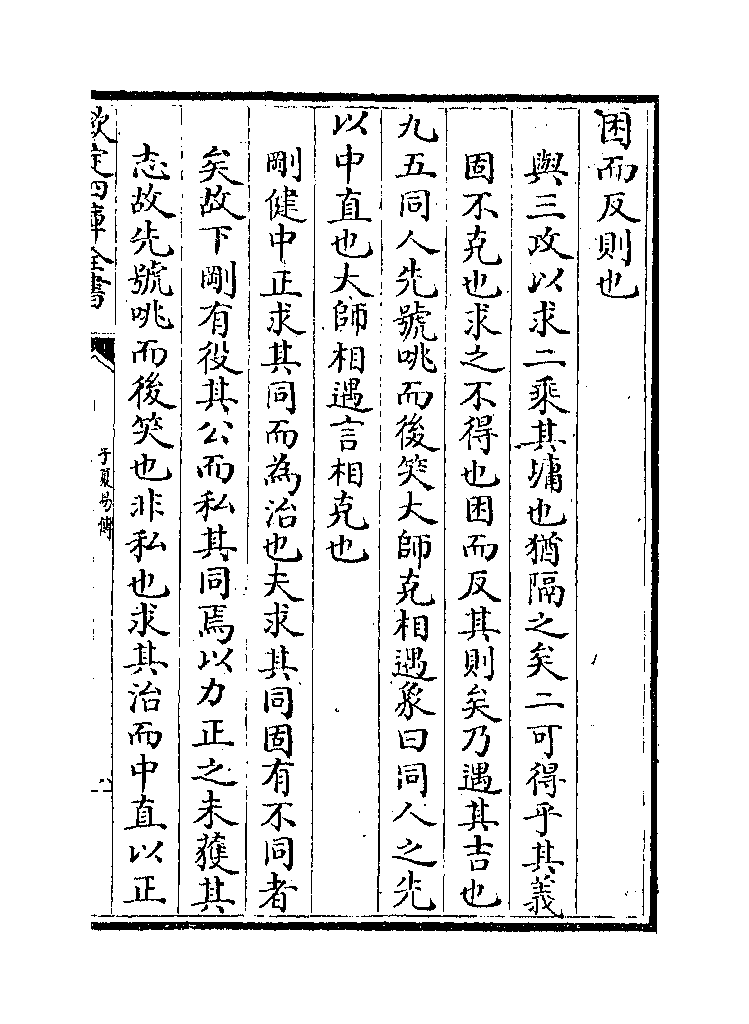 困而反則也
與三攻以求二乘其墉也猶隔之矣二可得乎其義
固不克也求之不得也困而反其則矣乃遇其吉也
九五同人先號咷而後笑大師克相遇象曰同人之先
以中直也大師相遇言相克也
剛健中正求其同而為治也夫求其同固有不同者
矣故下剛有役其公而私其同焉以力正之未獲其
志故先號咷而後笑也非私也求其治而中直以正
欽定四庫全書
子夏易傳